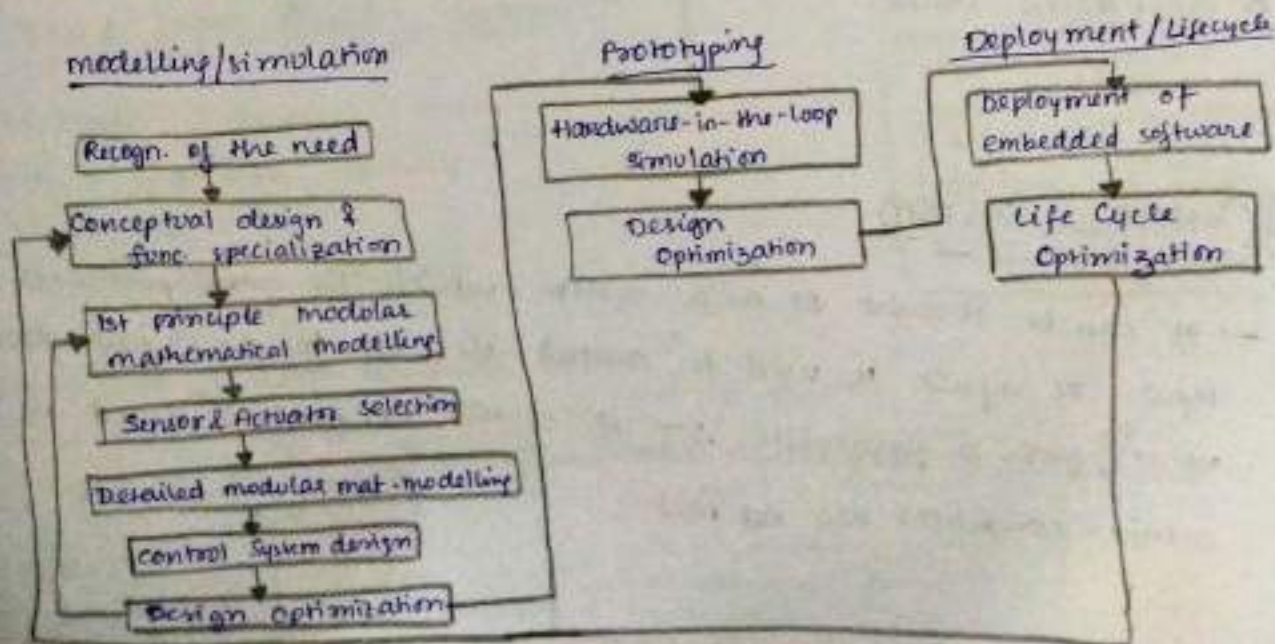 modelling/simulation
Recogn. of the need
Conceptual design &
func specialization
1st principle modular
mathematical modelling
Sensor & Actuator selection
Detailed modular mat-modelling
control System design
Design Optimization
Prototyping
Hardware-in-the-loop
simulation
Design
Optimization
Deployment/Lifecycle
Deployment of
embedded software
Life Cycle
Optimization